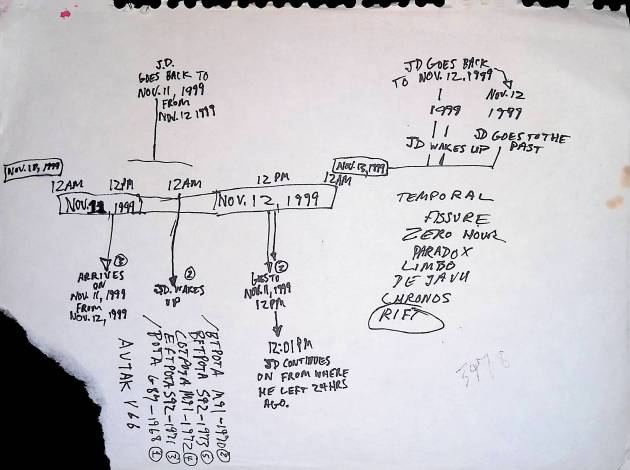 J.D.
GOES BACK TO
NOV. 11, 1999
FROM
NOV. 12 1999
JD GOES BACK
TO NOV. 12, 1999
1999
NOV. 12
1999
JD WAKES UP
JD GOES TO THE
PAST
12AM
12PM
12AM
12 PM
12AM
NOV. 11, 1999
NOV. 12, 1999
ARRIVES
ON
NOV. 11, 1999
FROM
NOV. 12, 1999
2
J.D. WAKES
UP
GOES TO
NOV. 11, 1999
12PM
12:01PM
JD CONTINUES
ON FROM WHERE
HE LEFT 24HRS
AGO.
TEMPORAL
FISSURE
ZERO HOUR
PARADOX
LIMBO
DEJAVU
CHRONOS
RIFT
BTPOTA M91-1970 2
BFTPOTA S92-1973 5
COTPOTA M91-1972 4
EFTPOTA S92-1971 3
POTA G89-1968 1
AVTAK V66